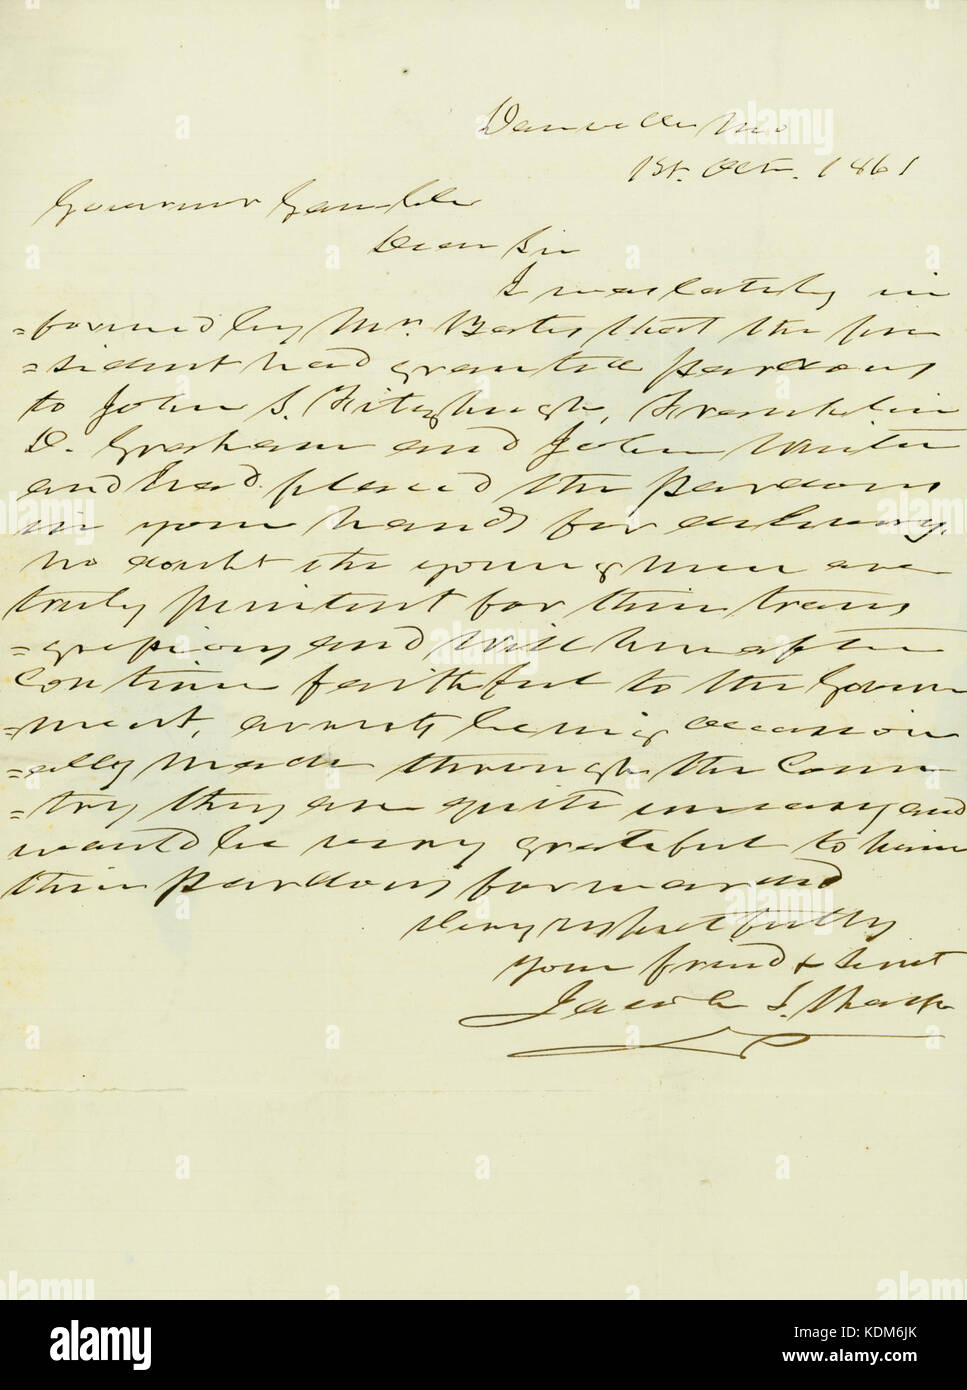 Danville Mo
1st. Oct. 1861
Governor Gamble
Dear Sir
I was lately in
=formed by Mr. Bates that the pre
=sident had granted pardons
to John S. Fitzhugh, Franklin
D. Graham and John White
and had placed the pardons
in your hands for delivery.
no doubt the young men are
truly penitent for their trans
=gressions and will hereafter
Continue faithful to the Govern
=ment, arrests being occasion
=ally made through the Coun
=try they are quite uneasy and
would be very grateful to have
their pardons forwarded
Very respectfully
Your friend & Servt
Jacob S. Sharp
alamy
a
Image ID: KDM6JK
www.alamy.com